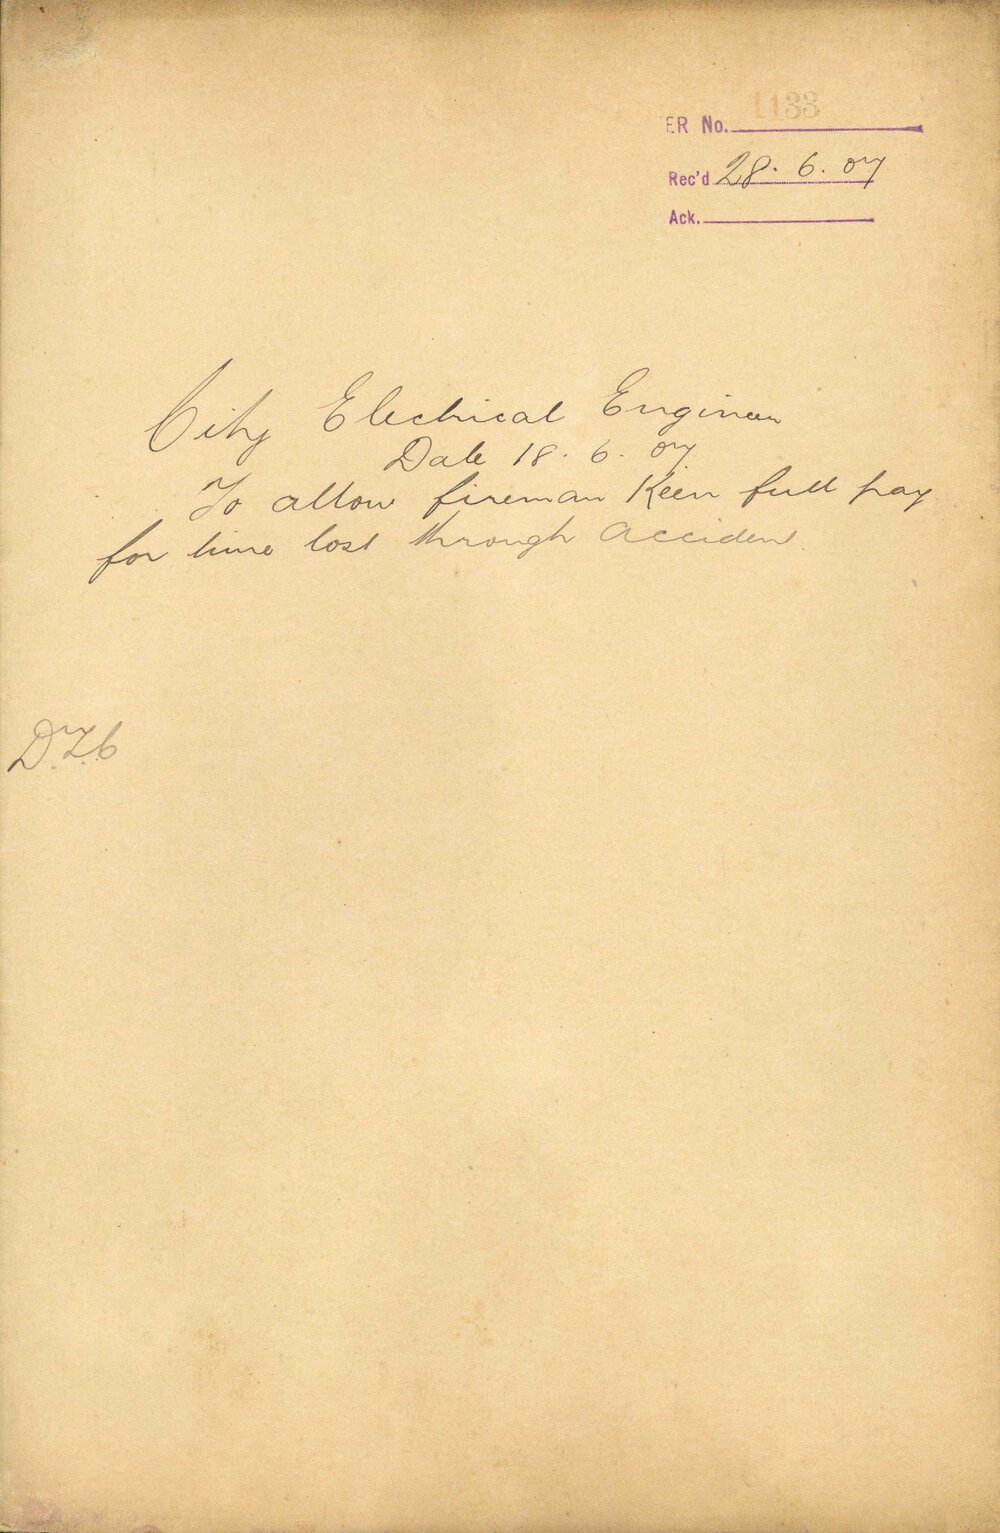 1133
ER No.
Rec'd 28. 6. 07
Ack.
City Electrical Engineer
Date 18. 6. 07
To allow fireman Keen full pay
for time lost through accident